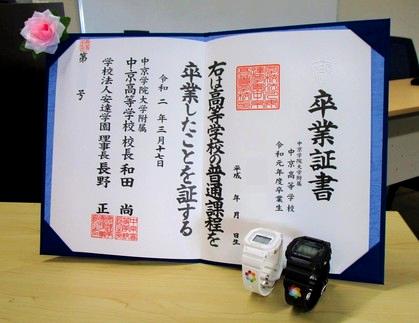 卒業証書
中京学院大学附属
中京高等学校
令和元年度卒業生
平成　年　月　日生
右は高等学校の普通課程を
卒業したことを証する
令和二年三月十七日
中京学院大学附属
中京高等学校 校長 和田 尚
学校法人安達学園 理事長 長野 正
第　号